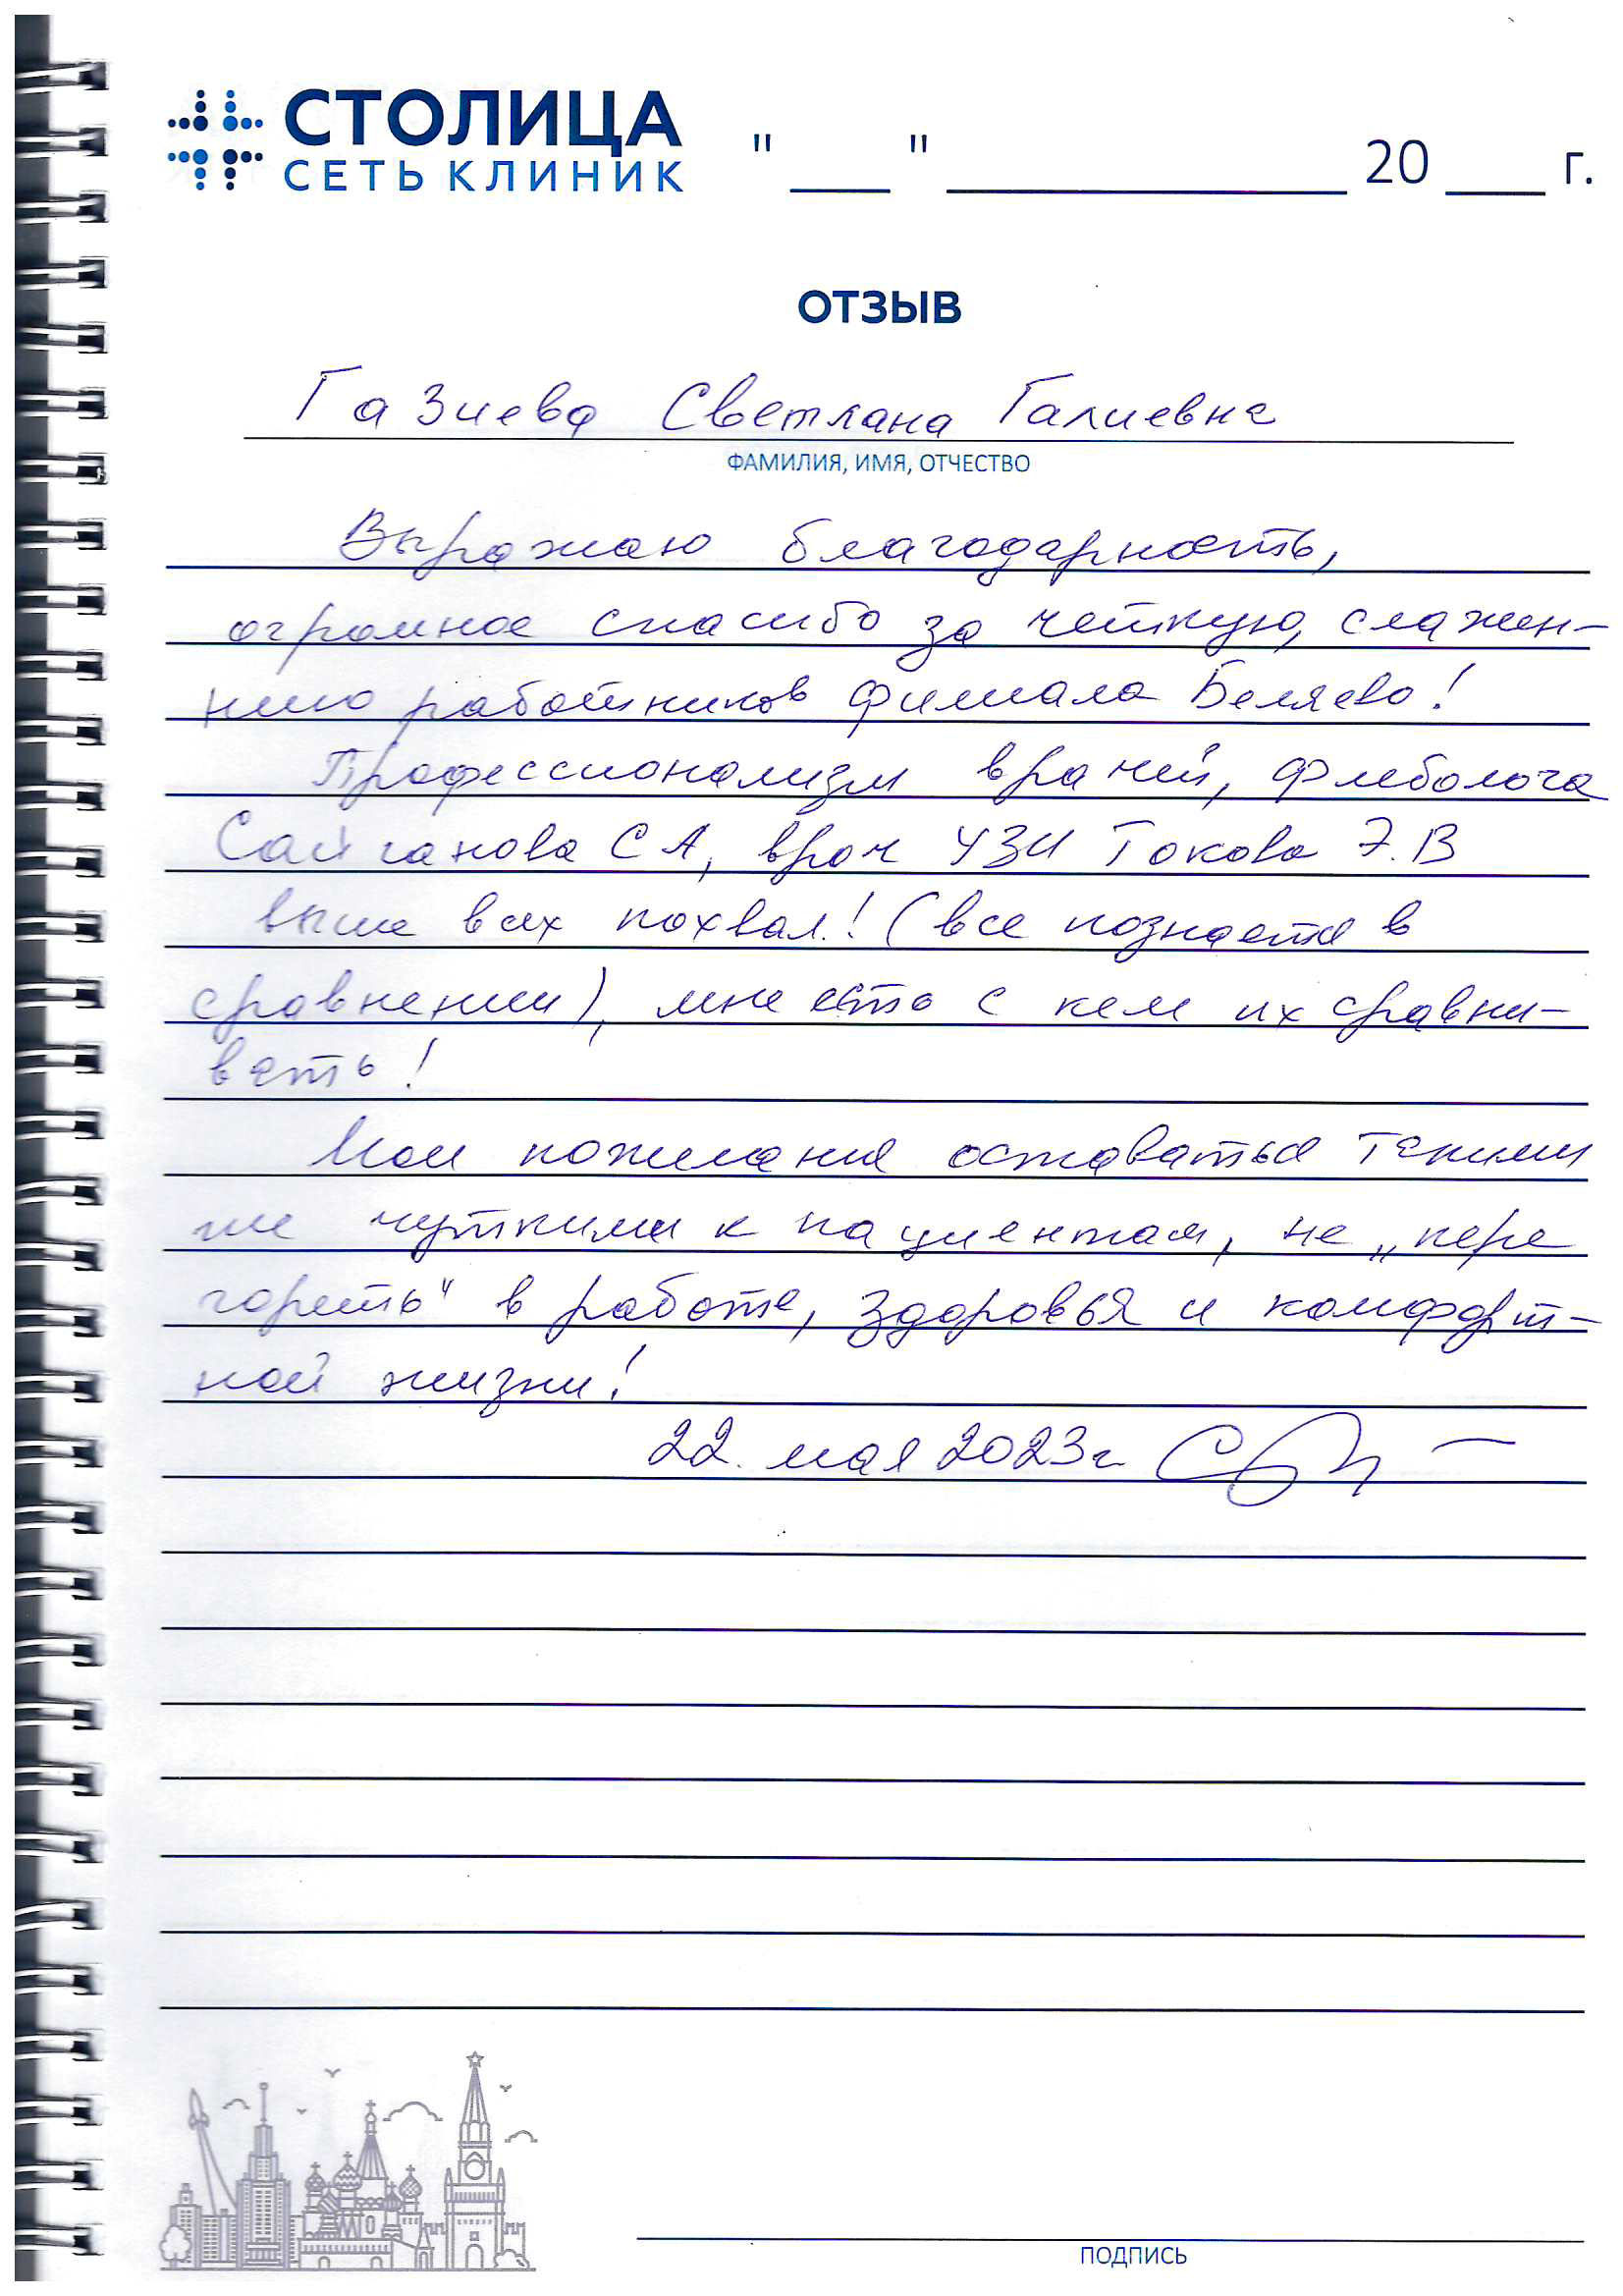 СТОЛИЦА
СЕТЬ КЛИНИК
" ___ " ____________ 20 ___ г.
ОТЗЫВ
Газиева Светлана Галиевна
ФАМИЛИЯ, ИМЯ, ОТЧЕСТВО
Выражаю благодарность,
огромное спасибо за четкую, слажен-
ную работников филиала Беляево!
Профессионализм врачей, флеболога
Сайганова С А, врач УЗИ Токова Э.В
выше всех похвал! (все познается в
сравнении), мне есть с кем их сравни-
вать!
Мои пожелания оставаться такими
же чуткими к пациентам, не „пере
гореть" в работе, здоровья и комфорт-
ной жизни!
22. мая 2023г
ПОДПИСЬ